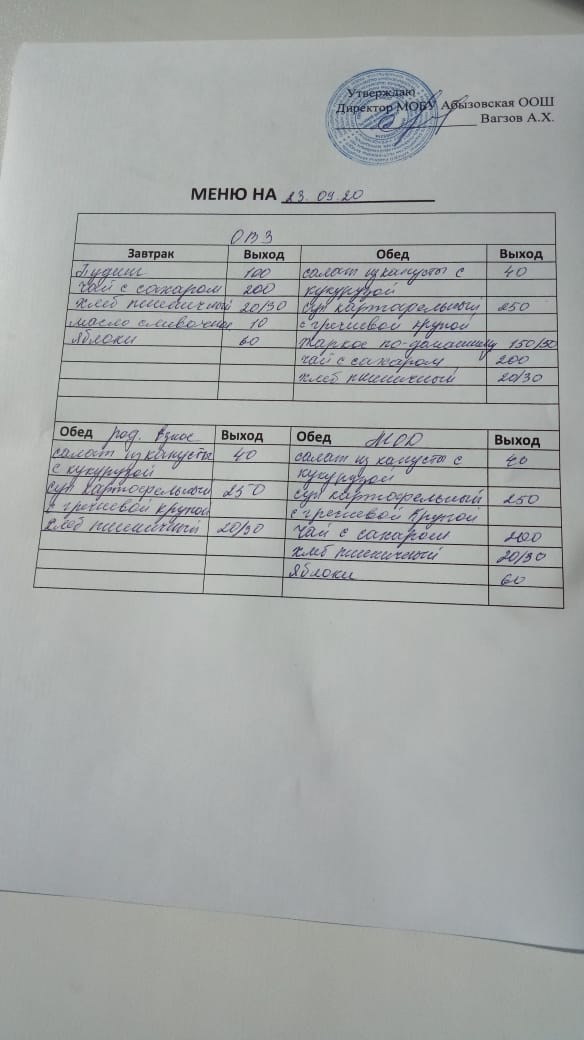 Утверждаю
Директор МОБУ Абызовская ООШ
Вагзов А.Х.
МЕНЮ НА 23.09.20
ОВЗ
Завтрак Выход Обед Выход
Пудинг 100 салат из капусты с 40
чай с сахаром 200 кукурузой
хлеб пшеничный 20/30 суп картофельный 250
масло сливочн 10 с гречневой крупой
яблоки 60 жаркое по-домашнему 150/50
чай с сахаром 200
хлеб пшеничный 20/30
Обед род. взнос Выход Обед Выход
салат из капусты 40 салат из капусты с 40
с кукурузой кукурузой
суп картофельный 250 суп картофельный 250
с гречневой крупой с гречневой крупой
хлеб пшеничный 20/30 чай с сахаром 200
хлеб пшеничный 20/30
яблоки 60